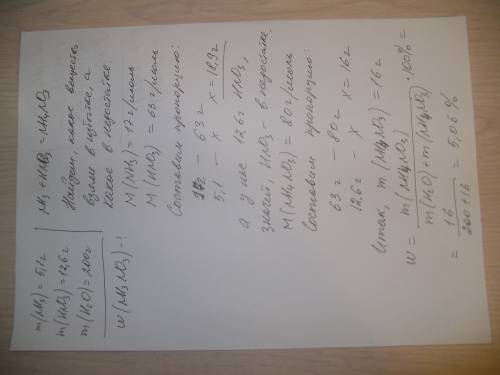 m(NH₃) = 5,1г
m(HNO₃) = 12,6г
m(H₂O) = 200г
w(NH₄NO₃) - ?
NH₃ + HNO₃ = NH₄NO₃
Найдем, какое веществ
взято в избытке, а
какое в недостатке.
M(NH₃) = 17г/моль
M(HNO₃) = 63г/моль
Составим пропорцию:
17г – 63г
5,1 – x x = 18,9г
а у нас 12,6г HNO₃,
значит, HNO₃ – в недостатке.
M(NH₄NO₃) = 80г/моль
Составим пропорцию:
63г – 80г
12,6г – x x = 16г
Итак, m(NH₄NO₃) = 16г
w = m(NH₄NO₃) / m(H₂O) + m(NH₄NO₃) · 100% =
= 16 / 200 + 16 = 5,06%